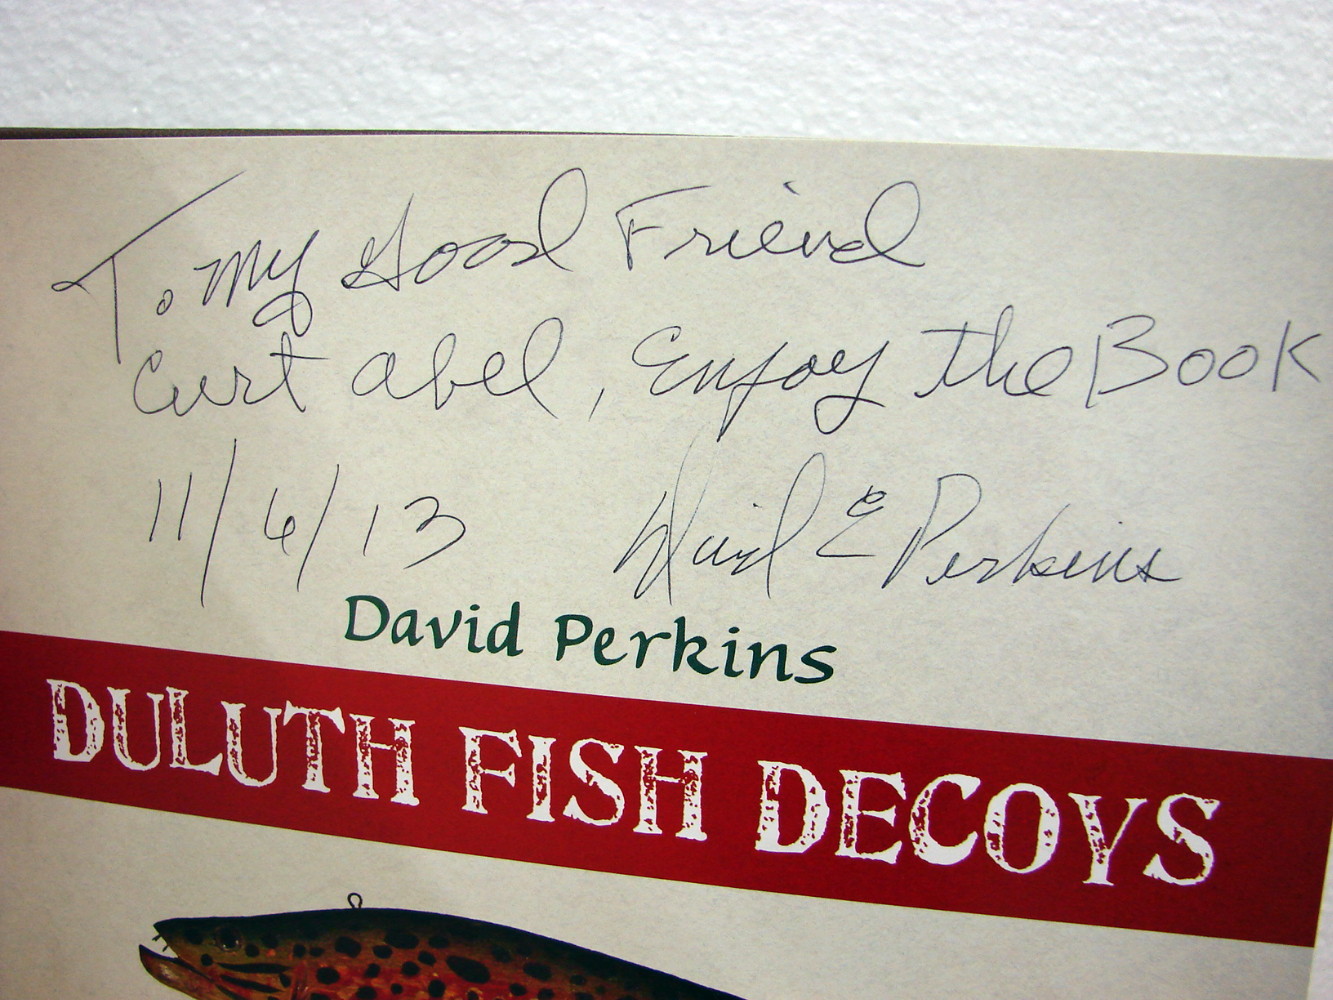 To my Good Friend
Curt Abel, Enjoy the Book
11/6/13 David E Perkins
David Perkins
DULUTH FISH DECOYS